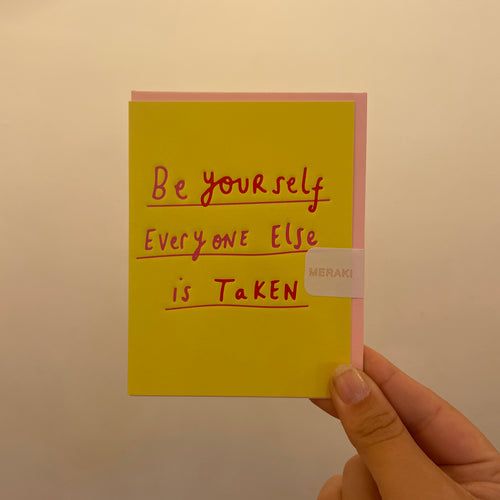 Be YOURself
EveryONE Else
MERAKI
is TaKEN